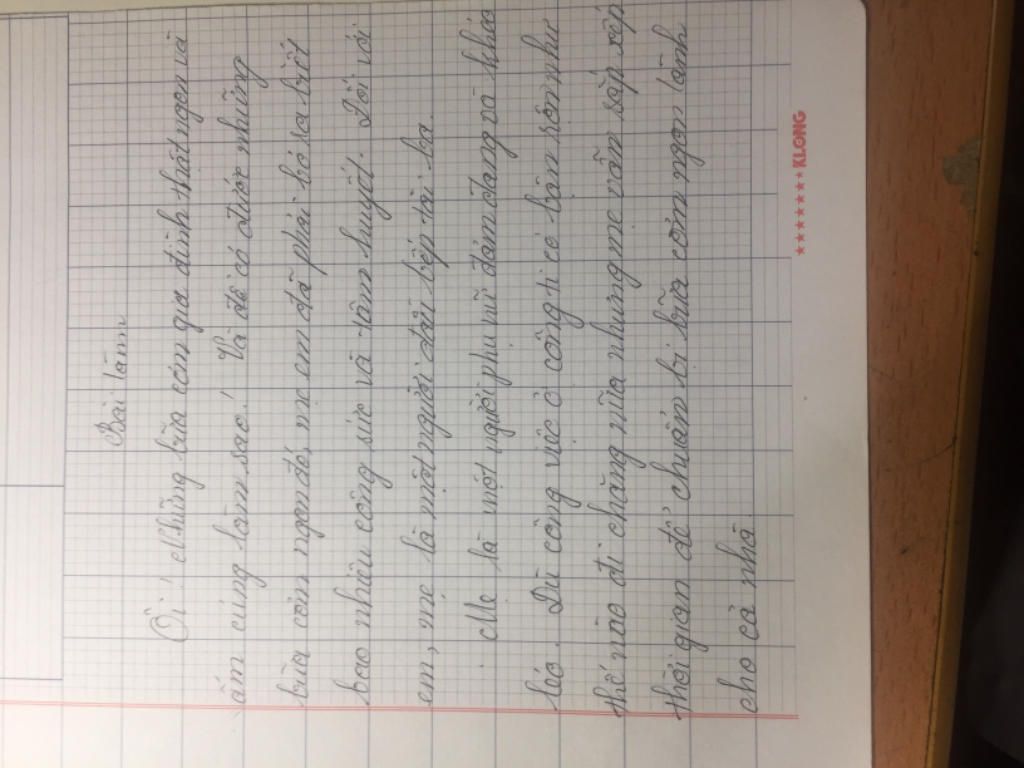 Bài làm
Ôi! Những bữa cơm gia đình thật ngon và
ấm cúng làm sao! Và để có được những
bữa cơm ngon đó, mẹ em đã phải bỏ ra biết
bao nhiêu công sức và tâm huyết. Đối với
em, mẹ là một người đầu bếp tài ba.
Mẹ là một người phụ nữ đảm đang và khéo
léo. Dù công việc ở công ti có bận rộn như
thế nào đi chăng nữa nhưng mẹ vẫn sắp sếp
thời gian để chuẩn bị bữa cơm ngon lành
cho cả nhà
KLONG